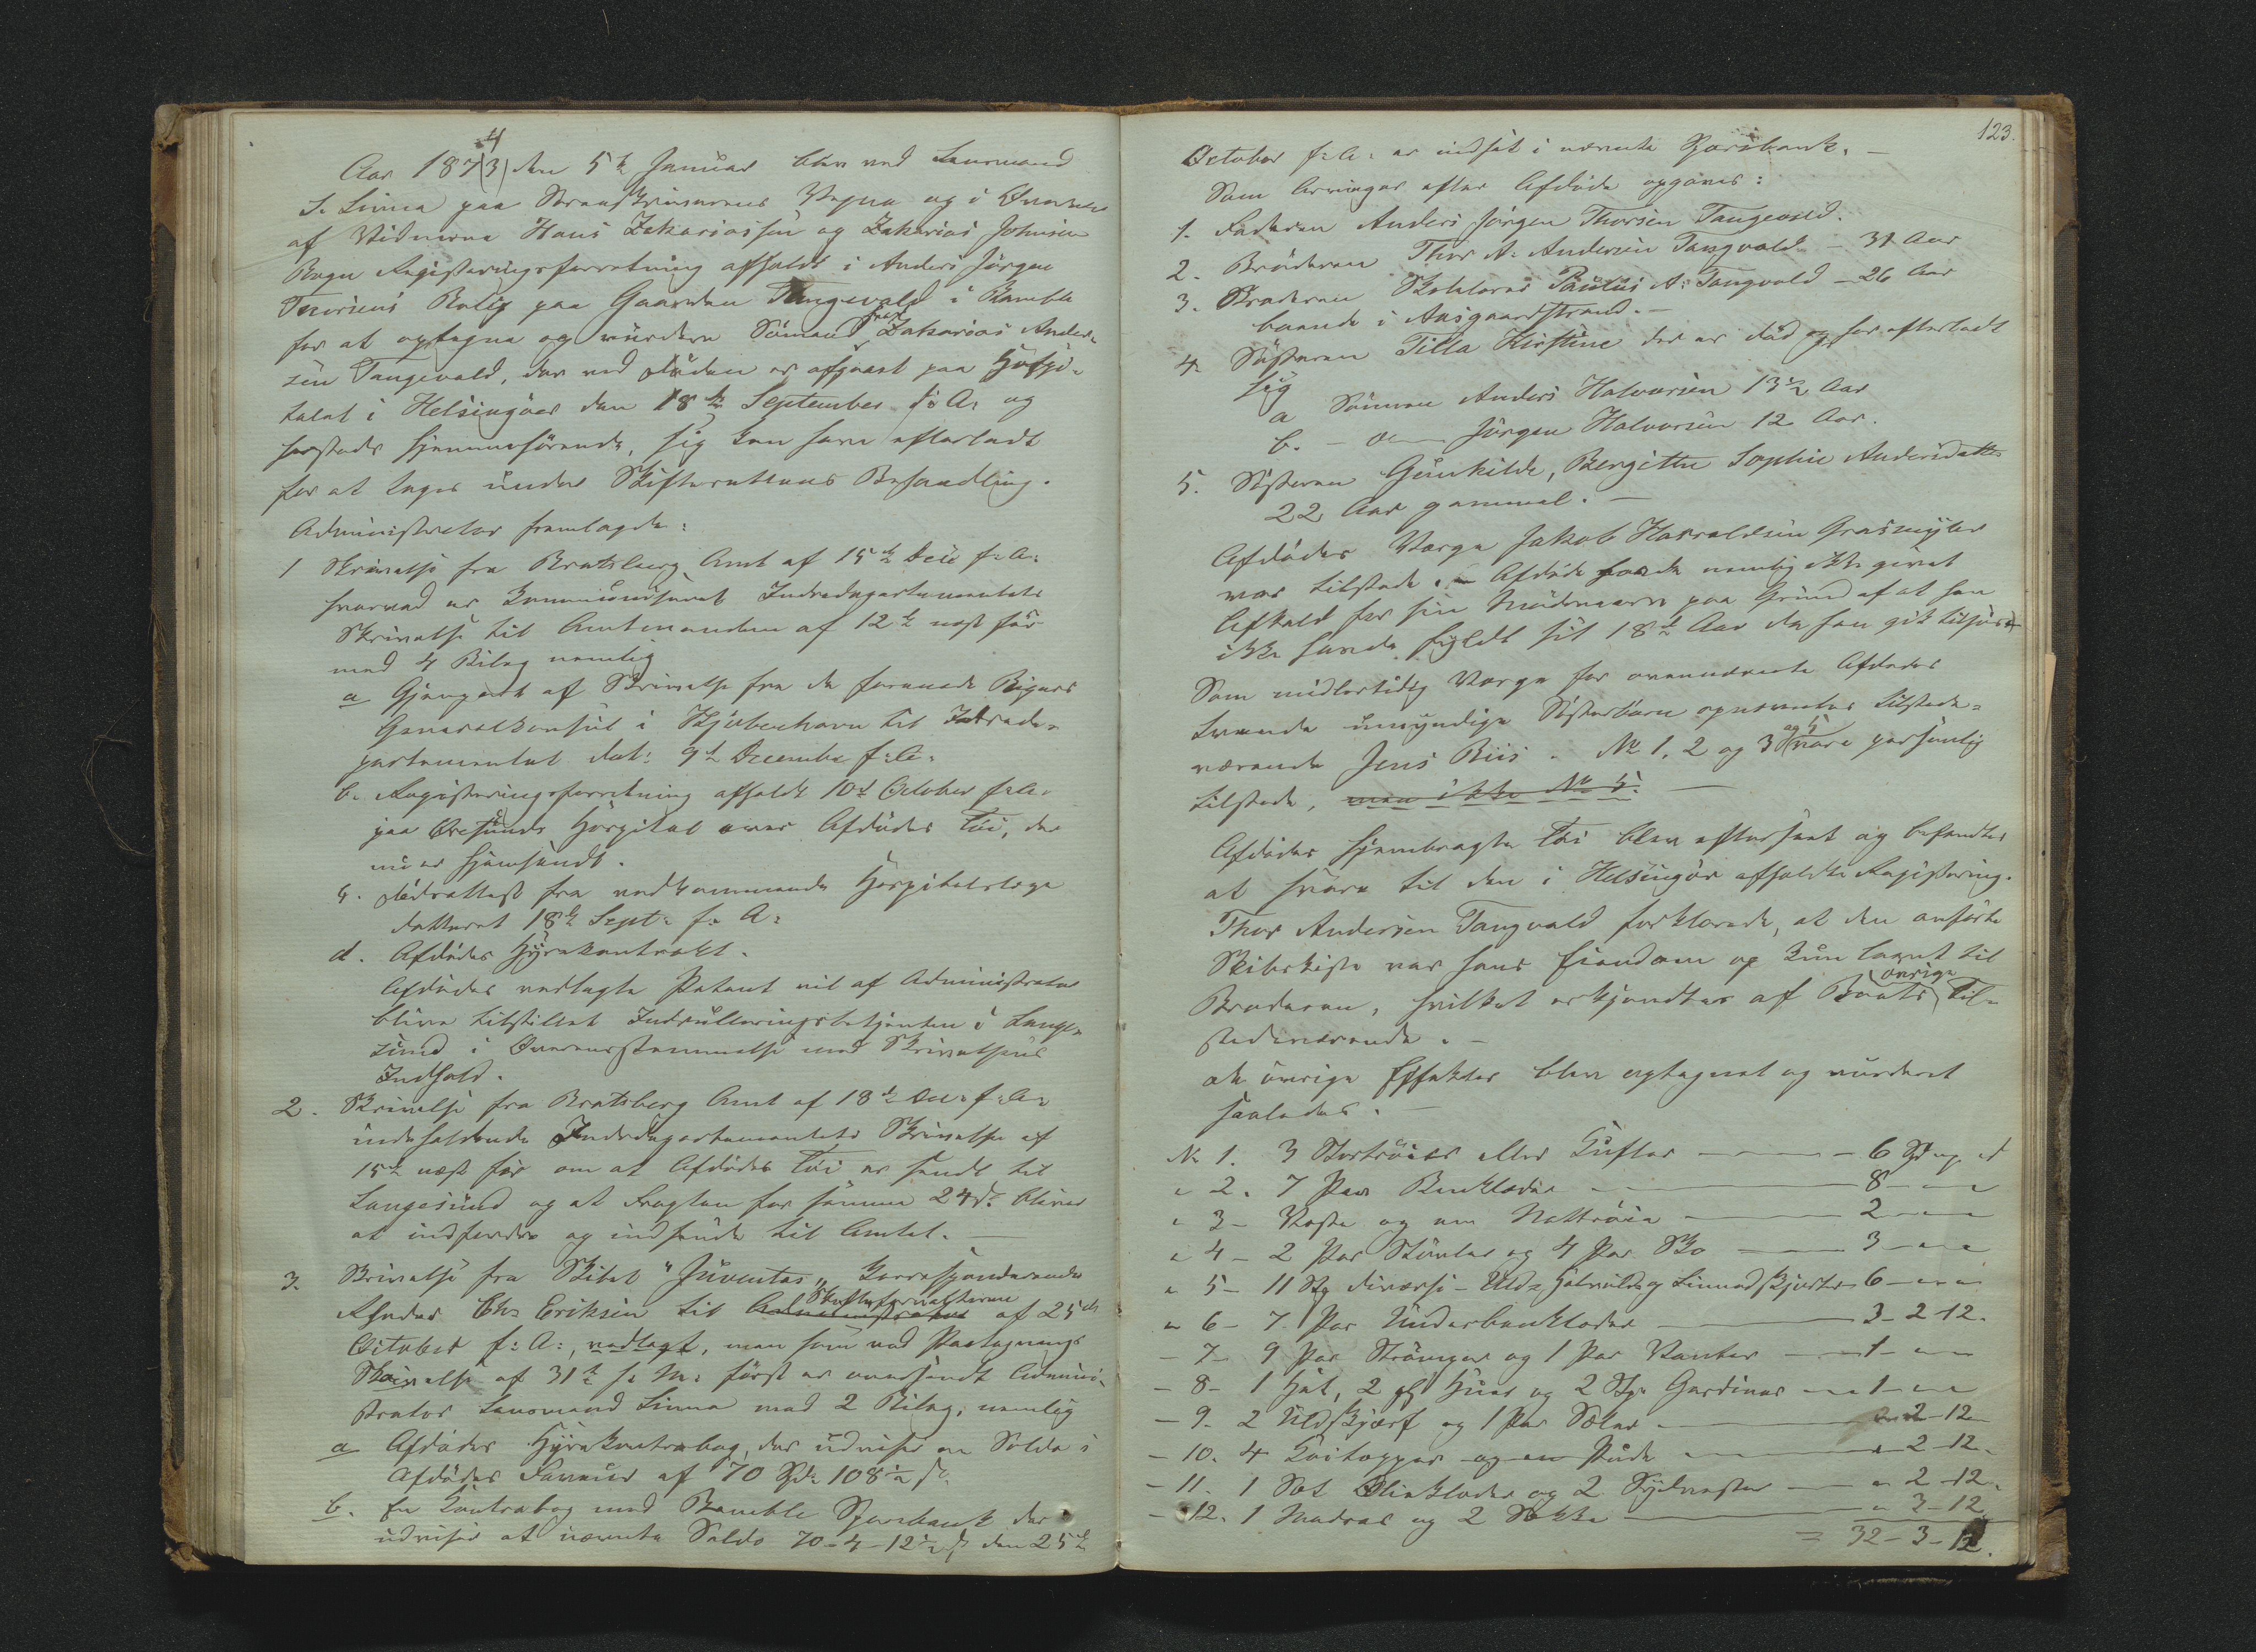 4
Aar 187(3) den 5te Januar blev ved Lensmand
S. Linna paa Sorenskriverens Vegne og i Overvær
af Vidnerne Hans Zakariassen og Zakarias Johnsen
Bagn Registreringsforretning afholdt i Anders Jørgen
Thorsens Bolig paa Gaarden Tangevald i Bamble
for at optegne og vurdere Sømand Zakarias Ander-
sen Tangevald, der ved Døden er afgaaet paa Hospi-
talet i Helsingør den 18de September f: A: og
hersteds hjemmehørende, sig kan have efterladt
for at tages under Skifterettens Behandling.
Administrator fremlagde:
1 Skrivelse fra Bratsberg Amt af 15de Dec f: A:
hvorved er kommuniceret Indredepartementets
Skrivelse til Amtmanden af 12te næst før
med 4 Bilag nemlig
a Gjenpart af Skrivelse fra de forenede Rigers
Generalkonsul i Kjøbenhavn til Indrede-
partementet dat: 9de December f: A:
b. Registreringsforretning afholdt 10de October f: A:
paa Øresunds Hospital over Afdødes Tøi, der
nu er hjemsendt.
c. Dødsattest fra vedkommende Hospitalslæge
datteret 18de Sept: f: A:
d. Afdødes Hyrekontrakt.
Afdødes vedlagte Patent vil af Administrator
blive tilstillet Indrulleringsbetjenten i Lange-
sund i Overensstemmelse med Skrivelsens
Indhold.
2. Skrivelse fra Bratsberg Amt af 18de Dec: f: A:
indeholdende Indredepartementets Skrivelse af
15de næst før om at Afdødes Tøi er sendt til
Langesund og at Fragten for samme 24 s. bliver
at indfordre og indsende til Amtet. —
3. Skrivelse fra Skibet "Juventas" korresponderende
Rheder Chr Eriksen til Administrator Skifteforvalteren af 25de
October f: A:, vedlagt, men som ved Paategnings
Skrivelse af 31te s: M: først er oversendt Admini-
strator Lensmand Linna med 2 Bilag, nemlig
a Afdødes Hyrekontrabog, der udviser en Saldo i
Afdødes Faveur af 70 Spd: 108 ½ s.
b. En Kontrabog med Bamble Sparebank der
udviser at nævnte Saldo 70-4-12½ s den 25de
123.
October f: A: er indsat i nævnte Sparebank. —
Som Arvinger efter Afdøde opgaves:
1. Faderen Anders Jørgen Thorsen Tangevald.
2. Broderen Thor A. Andersen Tangvald — 31 Aar
3. Broderen Paulus A: Tangvald — 26 Aar
boende i Aasgaardstrand. —
4. Søsteren Tilla Kirstine der er død og har efterladt
sig
a Sønnen Anders Halvorsen 13½ Aar
b. — do — Jørgen Halvorsen 12 Aar.
5. Søsteren Gunhilde, Bergitte Sophie Andersdatter
22 Aar gammel. —
Afdødes Værge Jakob Haraldsen Grasmyr
var tilstede. — Afdøde havde nemlig ikke givet
Afkald for sin Mødrenearv paa Grund af at han
ikke havde fyldt sit 18de Aar da han gik tilsøes
Som midlertidig Værge for ovennævnte Afdødes
tvende umyndige Søsterbørn opnævntes tilstede-
værende Jens Riis. No 1, 2 og 3 og 5 vare personlig
tilstede, men ikke No 5. —
Afdødes hjembragte Tøi blev efterseet og befandtes
at svare til den i Helsingør afholdte Registrering.
Thor Andersen Tangvald forklarede, at den anførte
Skibskiste var hans Eiendom og kun laant til
Broderen, hvilket erkjendtes af øvrige Til-
stedeværende. —
De øvrige Effekter blev optegnet og vurderet
saaledes. —
No 1. 3 Stortrøier eller Kufter — 6 Spd ort s
" 2. 7 Par Benklæder — 8 — " "
" 3 — Veste og en Nattrøie — 2 — " "
" 4 — 2 Par Støvler og 4 Par Sko — 3 — " "
" 5 — 11 Stk diverse Uld-, Halvuld og Linnedskjorter 6 — " "
" 6 — 7 Par Underbenklæder — 3-2-12.
— 7 — 9 Par Strømper og 1 Par Vanter — 1 — " "
— 8 — 1 Hat, 2 Huer og 2 Stk Gardiner — 1 — "
— 9. 2 Uldskjærf og 1 Par Sæler — " 2-12
— 10. 4 Køitæpper og en Pude — " 2-12.
— 11. 1 Sæt Olieklæder og 2 Sydvester — " 2-12.
— 12. 1 Madras og 2 Sække — " 3-12.
= 32-3-12.